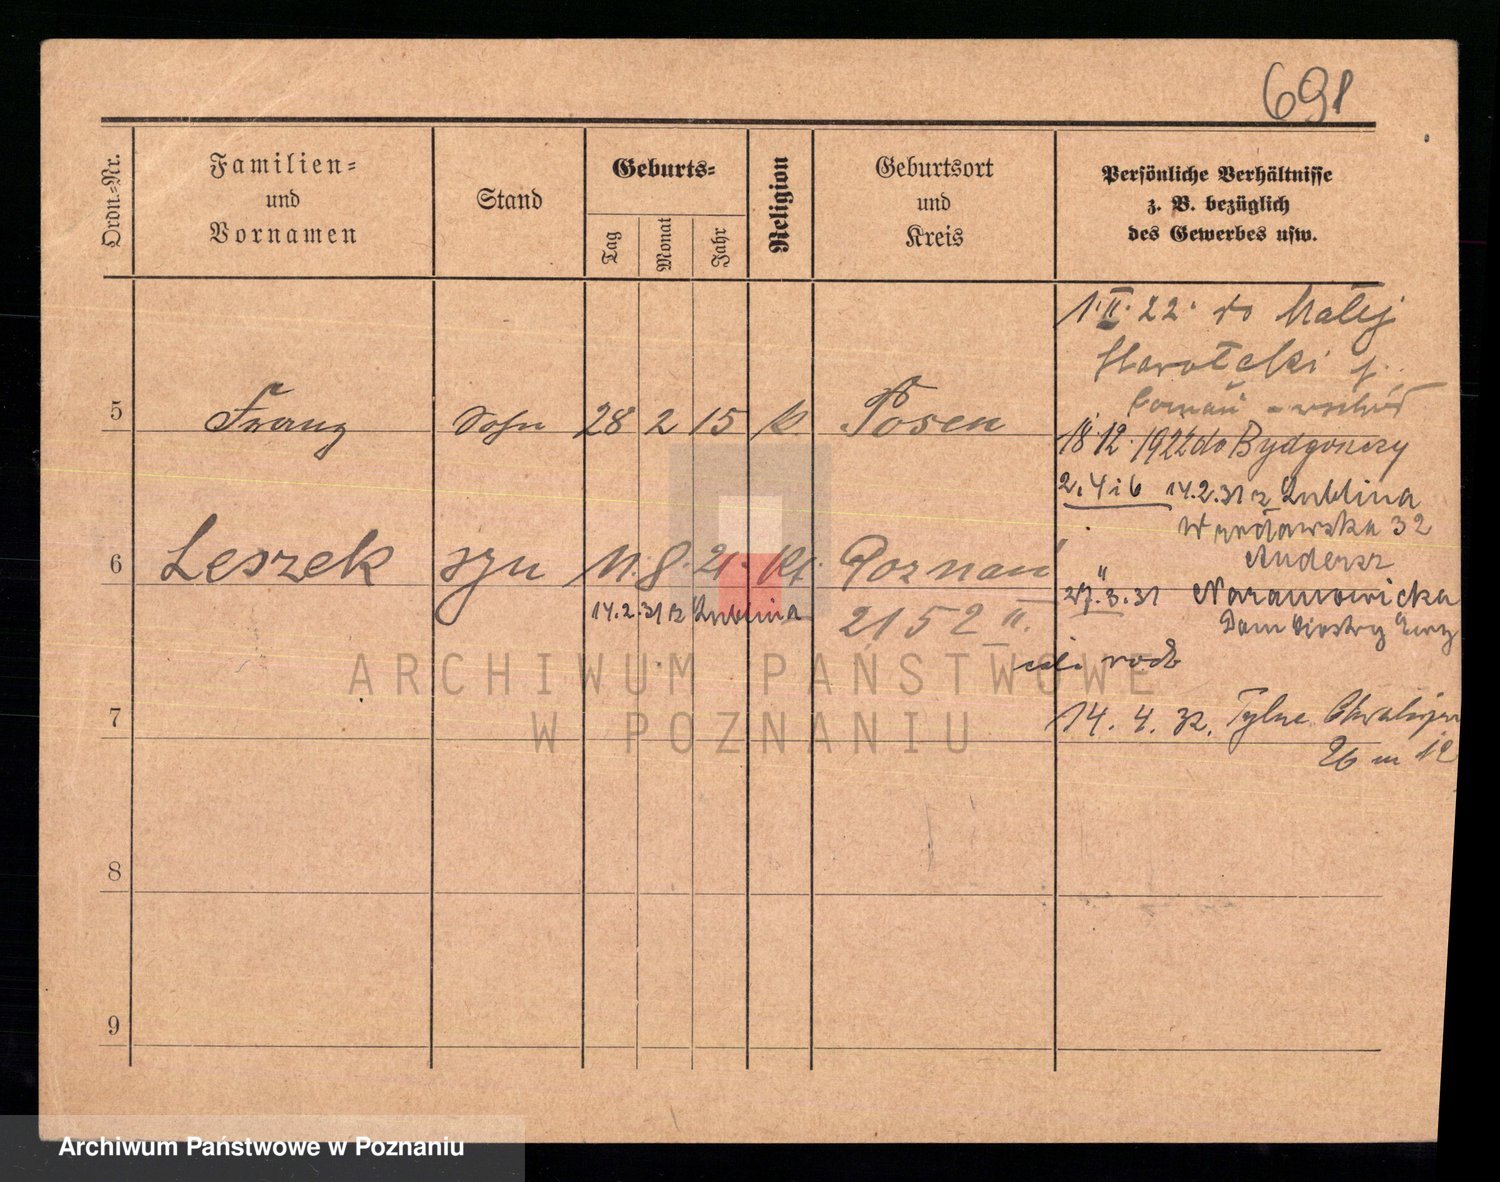 691
Ordn.=Nr.
Familien=
und
Vornamen
Stand
Geburts=
Tag
Monat
Jahr
Religion
Geburtsort
und
Kreis
Persönliche Verhältnisse
z. B. bezüglich
des Gewerbes usw.
1.II.22. do Małej
Starołęcki
5 Franz Sohn 28 2 15 k. Posen
18.12.1922 do Bydgoszczy
2.4 i 6 14.2.31 z Lublina
32
Anders
6 Leszek syn 11.8.21. Kt. Poznań
14.2.31 z Lublina
27.3.31 Naramowicka
2152 II.
ARCHIWUM PAŃSTWOWE
W POZNANIU
7
14.4.32. Tylne Chwaliszewo
26 m 12
8
9
Archiwum Państwowe w Poznaniu